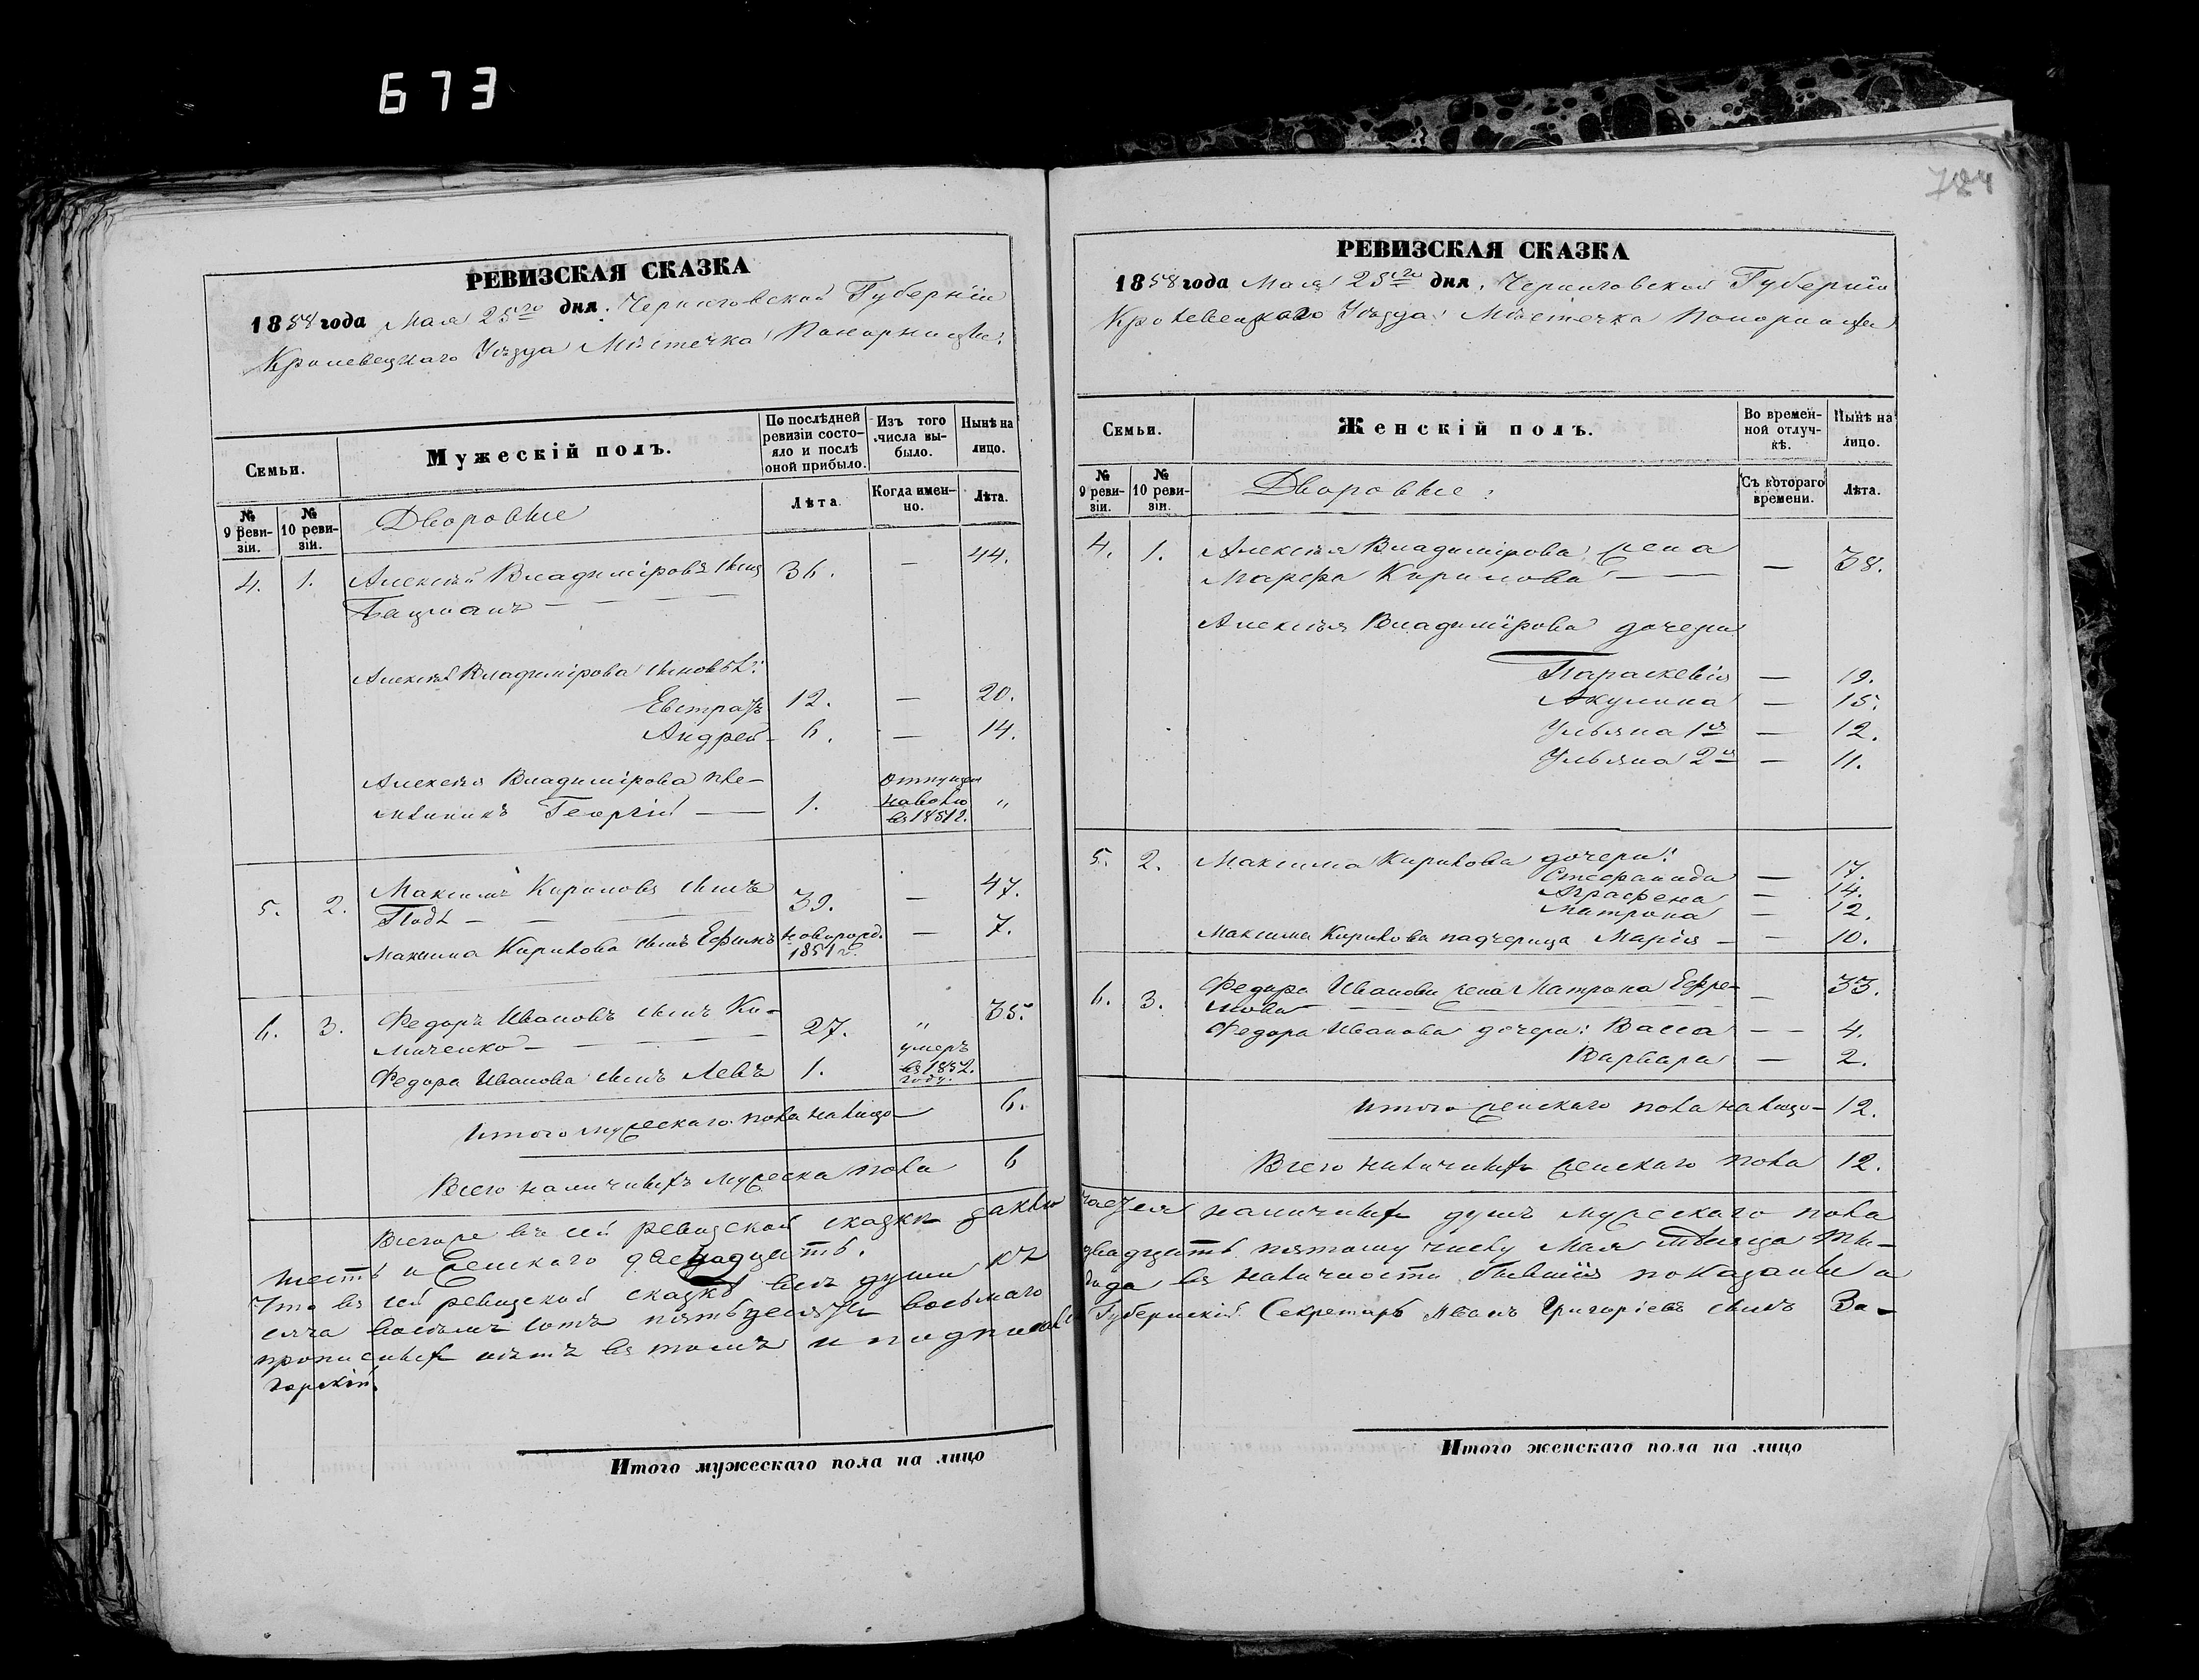 673
784
РЕВИЗСКАЯ СКАЗКА
1858 года Мая 25го дня. Черниговской Губерніи
Кролевецкаго Уѣзда Мѣстечка Понорницы.
Семьи.
Мужескій полъ.
По послѣдней ревизіи состояло и послѣ оной прибыло.
Изъ того числа выбыло.
Нынѣ на лицо.
№ 9 ревизіи.
№ 10 ревизіи.
Дворовые
Лѣта.
Когда именно.
Лѣта.
4. 1. Алексѣй Владиміровъ сынъ 36. — 44.
Алексѣя Владимірова сыновья:
Евстрафъ 12. — 20.
Андрей 6. — 14.
Алексѣя Владимірова пле-
мянникъ Георгій — 1. Отпущен на волю въ 1851 г. „
5. 2. Максимъ Кириловъ сынъ 39. — 47.
Максима Кирилова сынъ Ефимъ новорожд. 1851 г. — 7.
6. 3. Федоръ Ивановъ сынъ Ко- 27. „ 35.
Федора Иванова сынъ Левъ 1. умеръ въ 1852. году.
Итого мужескаго пола налицо — 6.
Всего наличныхъ мужеска пола 6
Всего же въ сей ревизской сказкѣ заклю
шесть и женскаго двенадцать.
Что въ сей ревизской сказкѣ всѣ души къ
сяча восемь сотъ пятьдесятъ восьмаго
прописныхъ нѣтъ въ томъ и подписался
горскій.
Итого мужескаго пола на лицо
РЕВИЗСКАЯ СКАЗКА
1858 года Мая 25го дня, Черниговской Губерніи
Кролевецкаго Уѣзда Мѣстечка Понорницы
Семьи.
Женскій полъ.
Во временной отлучкѣ.
Нынѣ на лицо.
№ 9 ревизіи.
№ 10 ревизіи.
Дворовые:
Съ котораго времени.
Лѣта.
4. 1. Алексѣя Владимірова жена
Марфа Кирилова — — 38.
Алексѣя Владимірова дочери
Параскевія — 19.
Акулина — 15.
Ульяна 1я — 12.
Ульяна 2я — 11.
5. 2. Максима Кирилова дочери:
Стефанида — 17.
Аграфена — 14.
Матрона — 12.
Максима Кирилова падчерица Марія — — 10.
6. 3. Федора Иванова жена Матрона Ефре-
мова — 33.
Федора Иванова дочери: Васса — — 4.
Варвара — 2.
Итого женскаго пола налицо — 12.
Всего наличныхъ женскаго пола 12.
чается наличныхъ душъ мужескаго пола
двадцать пятому числу Мая мѣсяца ты-
года въ наличности бывшія показаны и
Губернскій Секретарь Иванъ Григорьевъ сынъ За-
Итого женскаго пола на лицо